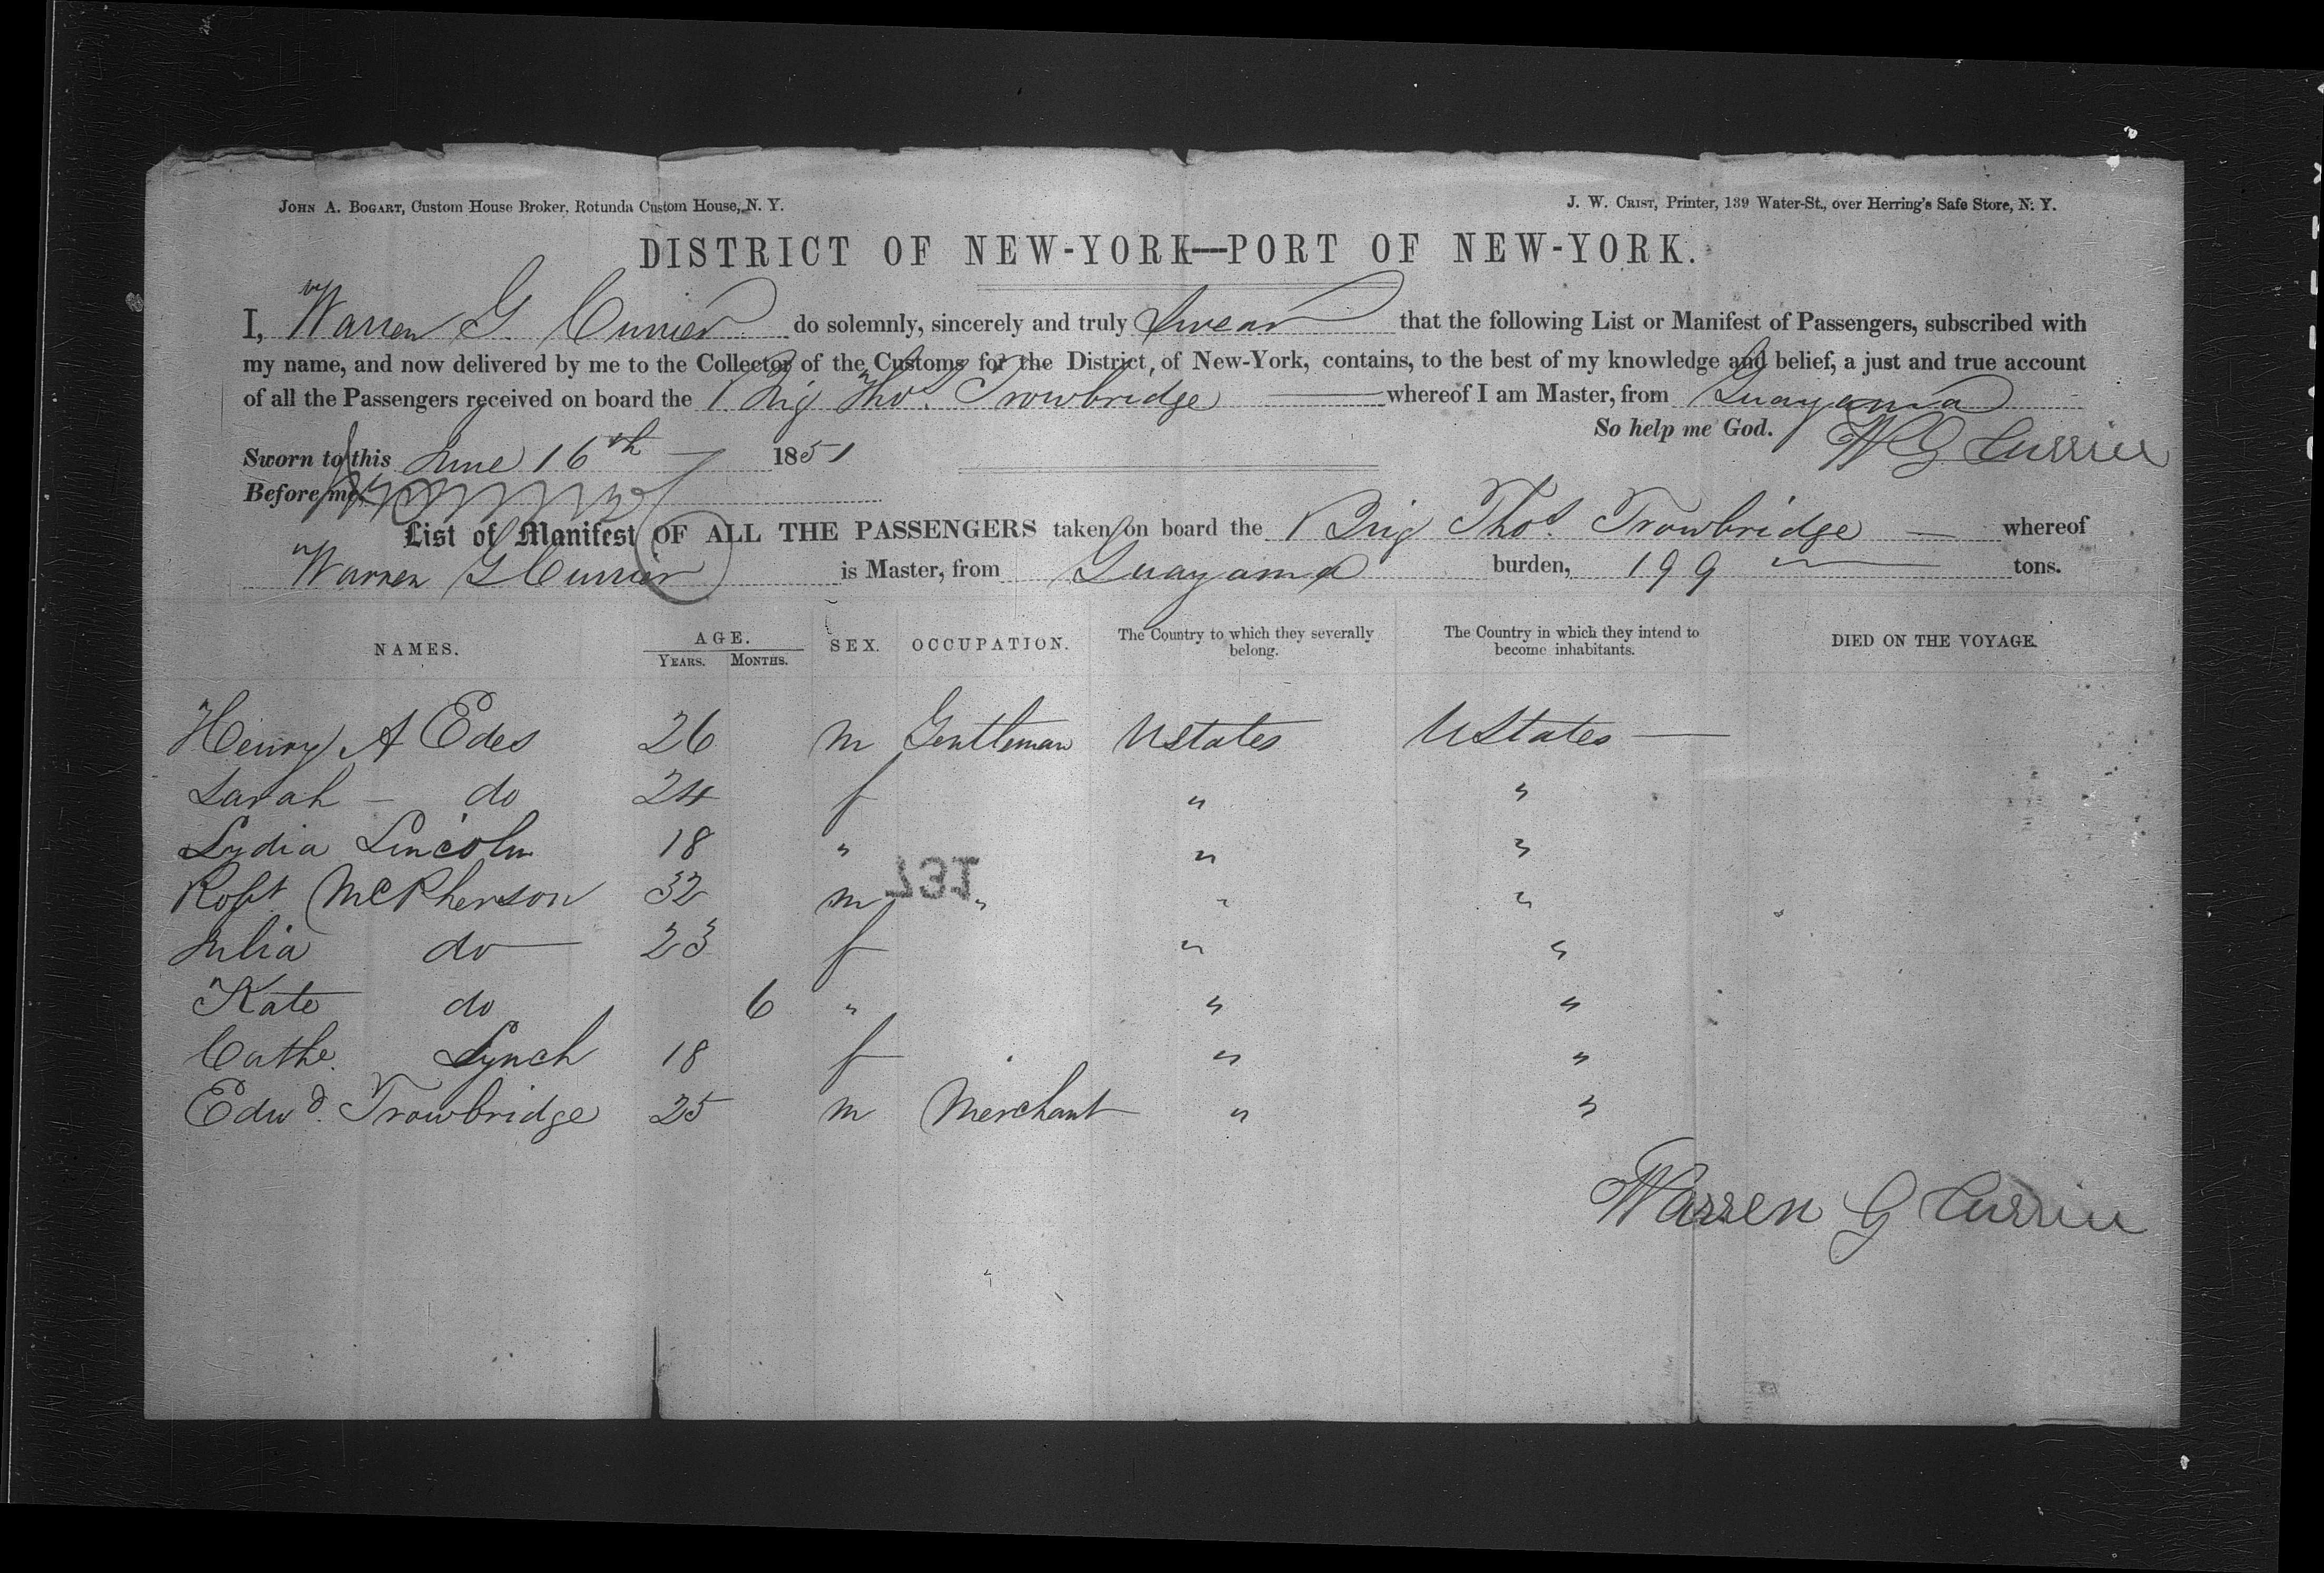 JOHN A. BOGART, Custom House Broker, Rotunda Custom House, N. Y.
J. W. CRIST, Printer, 139 Water-St., over Herring's Safe Store, N. Y.
DISTRICT OF NEW-YORK—PORT OF NEW-YORK.
I, Warren G. Currier do solemnly, sincerely and truly Swear that the following List or Manifest of Passengers, subscribed with
my name, and now delivered by me to the Collector of the Customs for the District, of New-York, contains, to the best of my knowledge and belief, a just and true account
of all the Passengers received on board the Brig Thos. Trowbridge whereof I am Master, from Guayama
So help me God. W G Currier
Sworn to this June 16th 1851
Before me
List of Manifest OF ALL THE PASSENGERS taken on board the Brig Thos. Trowbridge — whereof
Warren G Currier is Master, from Guayama burden, 199 tons.
NAMES. AGE. YEARS. MONTHS. SEX. OCCUPATION. The Country to which they severally belong. The Country in which they intend to become inhabitants. DIED ON THE VOYAGE.
Henry A Edes 26 m Gentleman UStates UStates —
Sarah — do 24 f " "
Lydia Lincoln 18 " " "
Robt McPherson 32 m " " "
Julia do 23 f " "
Kate do 6 " " "
Cathe. Lynch 18 f " "
Edwd. Trowbridge 25 m Merchant " "
731
Warren G Currier